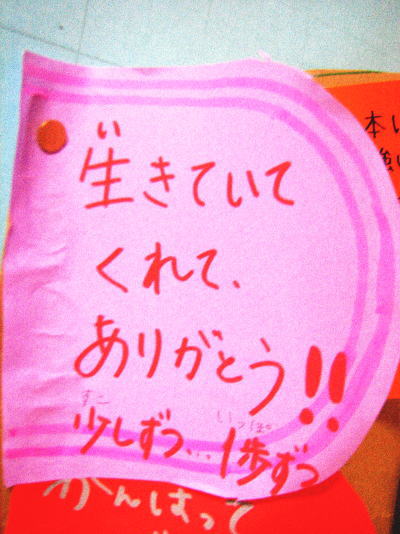 い
生きていて
くれて、
ありがとう!!
すこ いっぽ
少しずつ...1歩ずつ
がんばって